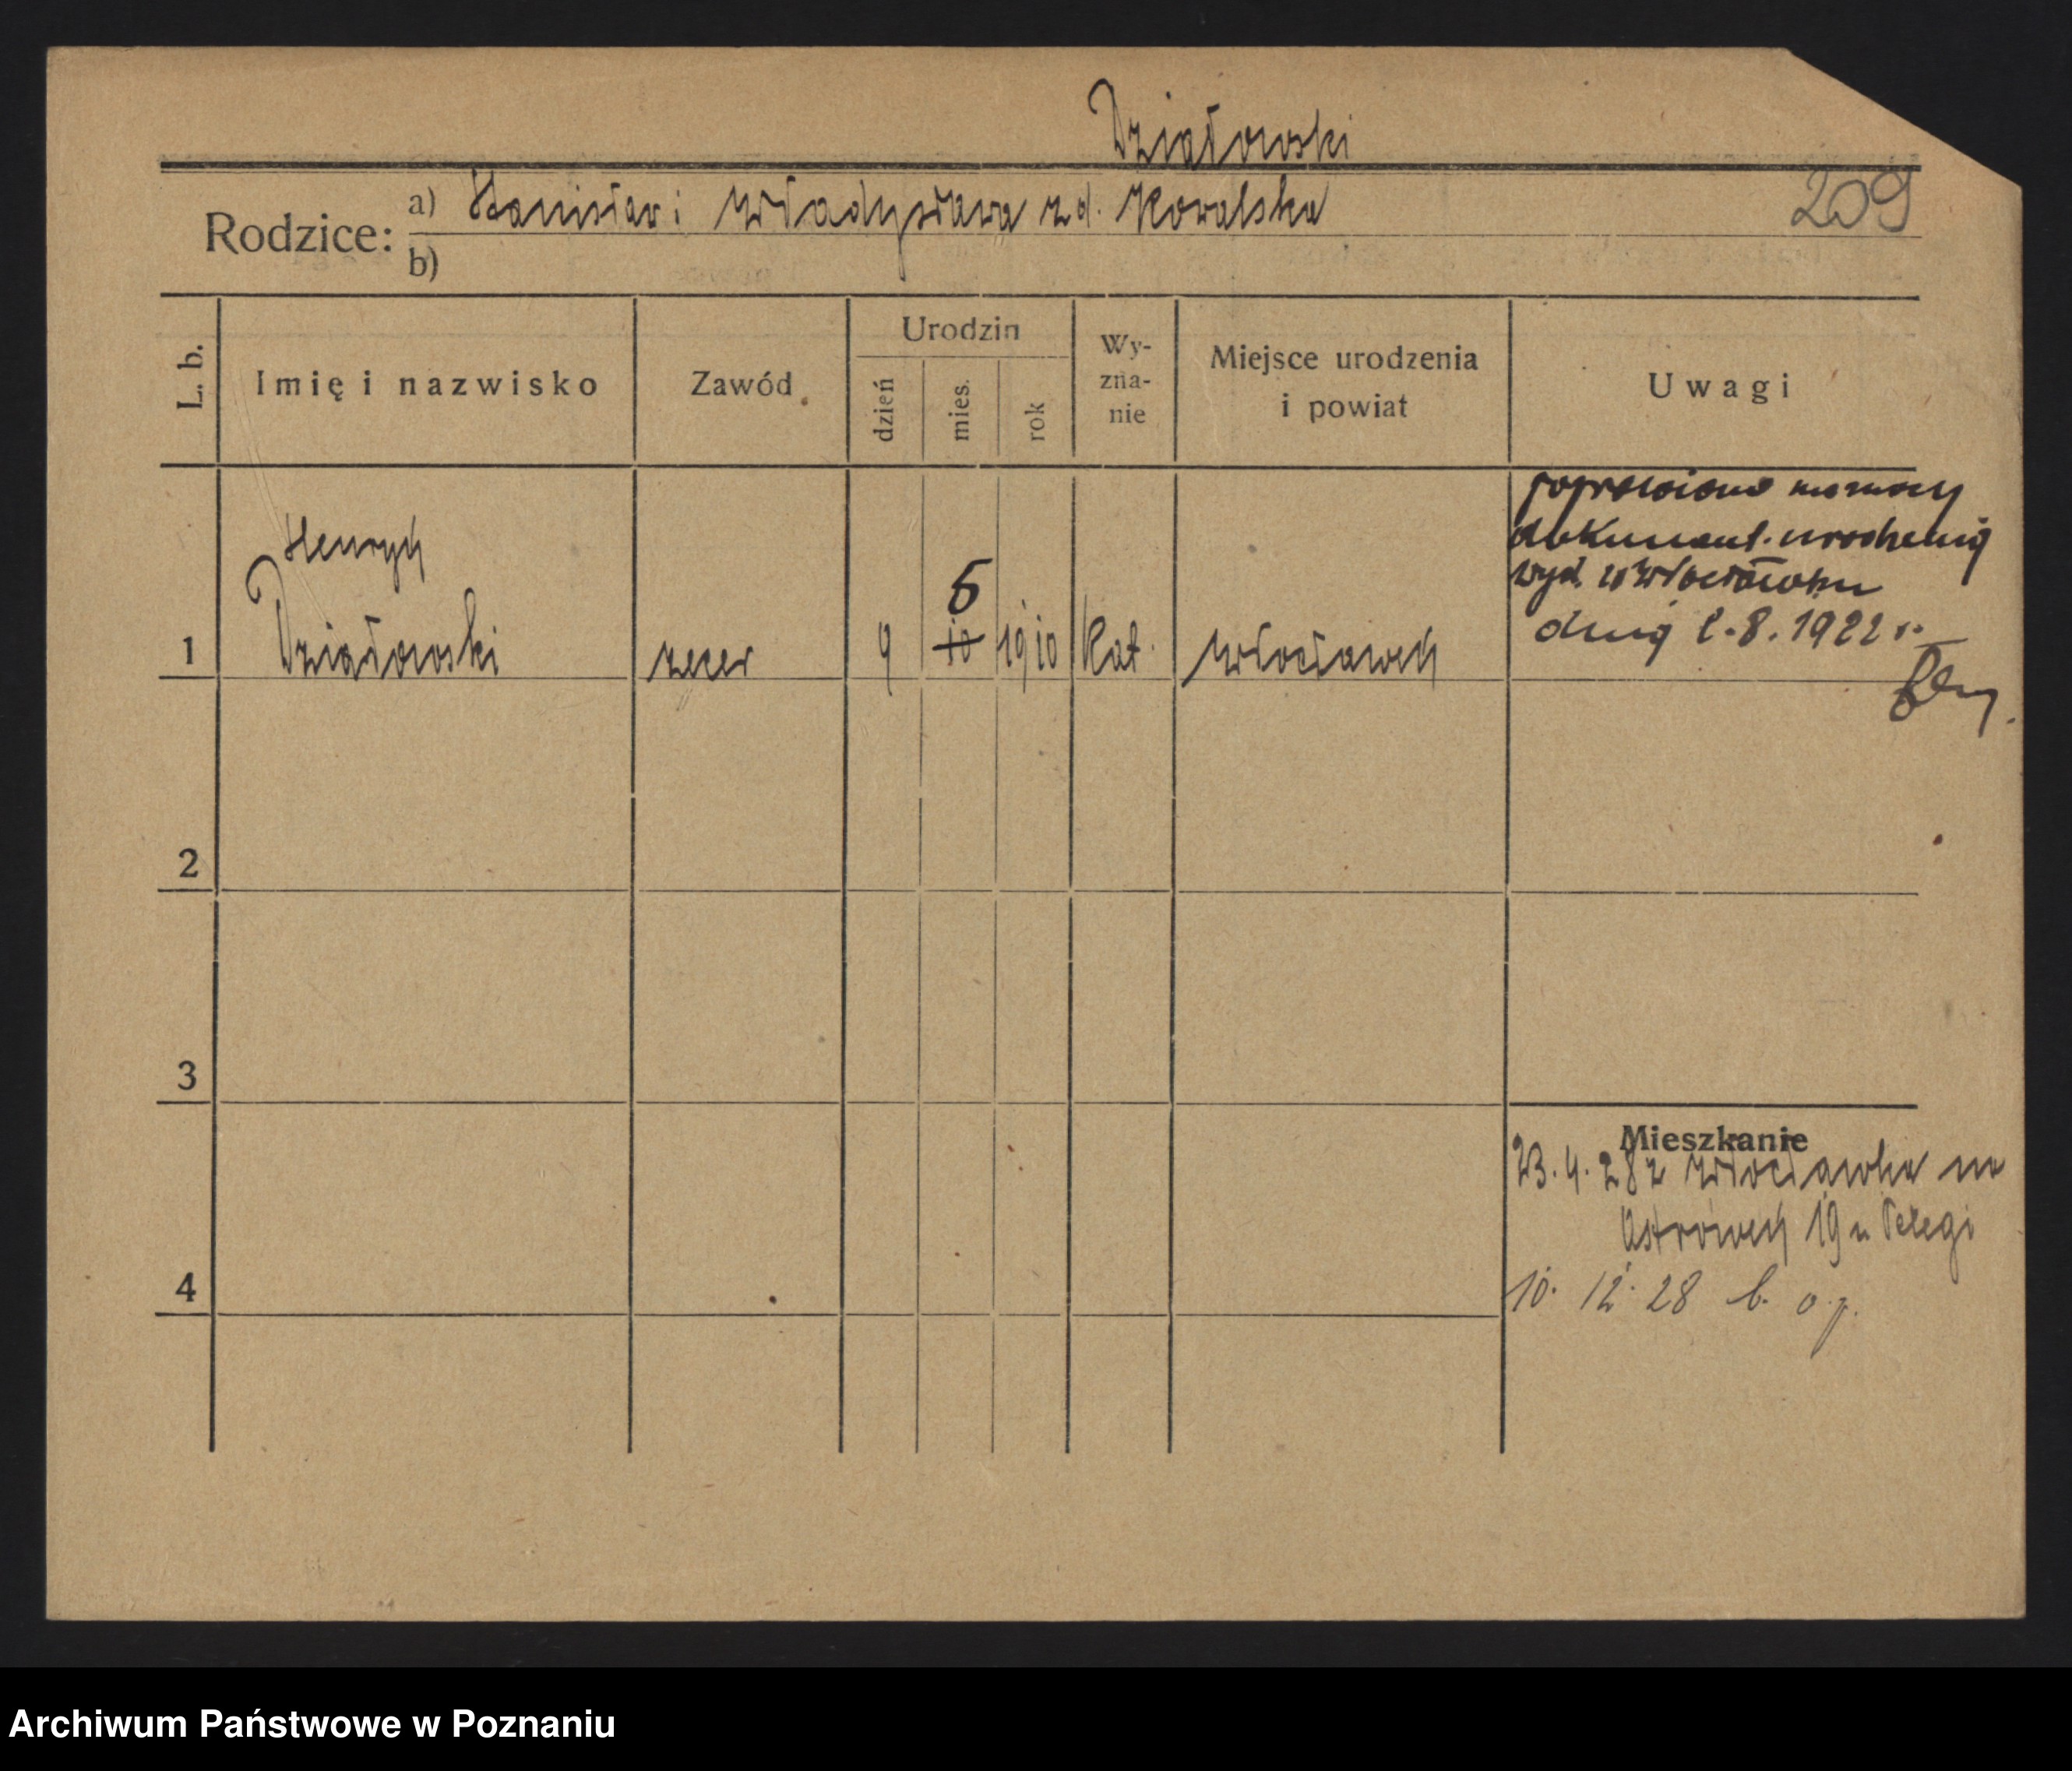 Działowski
Rodzice: a) Stanisław i Władysława z d. Kowalska 209
b)
L. b. Imię i nazwisko Zawód Urodzin dzień mies. rok Wy-zna-nie Miejsce urodzenia i powiat Uwagi
poprawiono na mocy
dokument. urodzenia
wyd. w Włocławku
dnia 2.8.1922 r.
Henryk
5
1 Działowski zecer 9 10 1910 kat. Włocławek
2
3
Mieszkanie
23.4.28 z Włocławka na
Ostrówek 19 u
4
10.12.28 b. o. p.
Archiwum Państwowe w Poznaniu